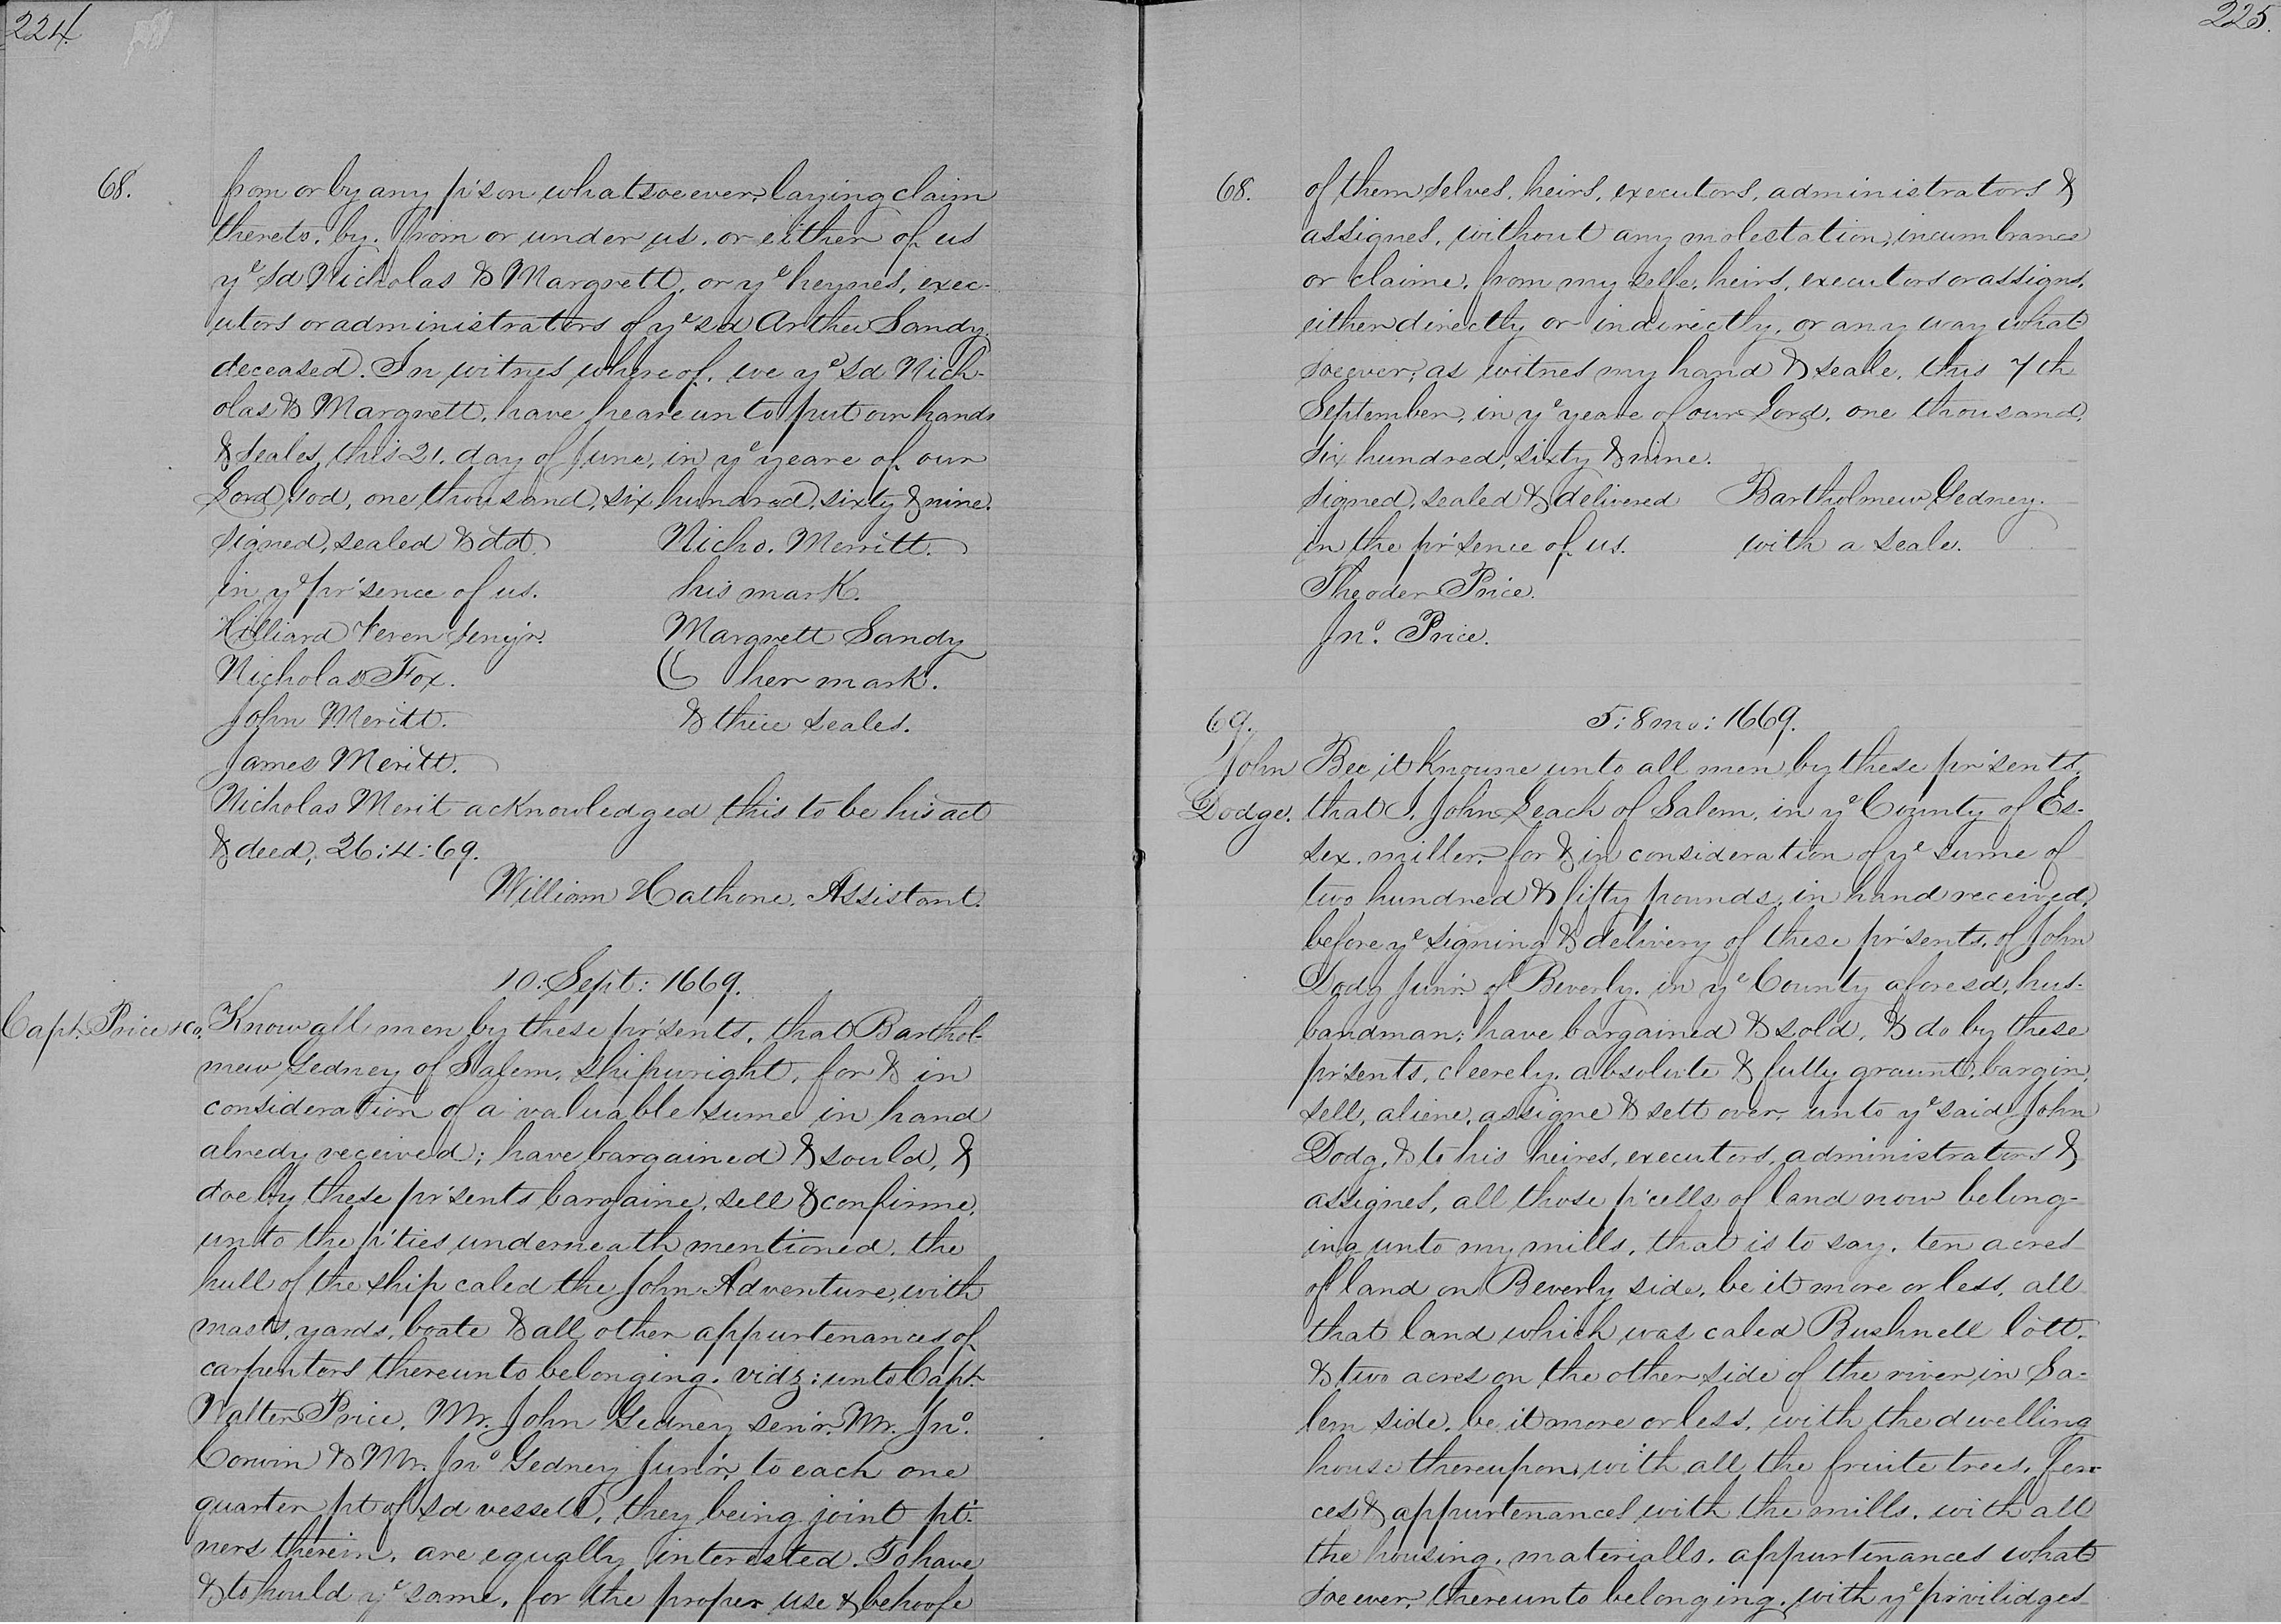 224.
68.
from or by any p'son whatsoeever, laying claim
thereto, by, from or under us, or either of us
yᵉ sd Nicholas & Margrett, or yᵉ heynes, exec-
utors or administrators of yᵉ sd Arther Sandy,
deceased. In witnes whereof, we yᵉ sd Nich-
olas & Margrett, have heareunto put our hands
& seales, this 21. day of June, in yᵉ yeare of our
Lord God, one thousand, six hundred, sixty & nine.
signed, sealed & dd Nicho. Merritt.
in yᵉ pr'sence of us. his mark.
Hilliard Veren senyr. Margrett Sandy
Nicholas Fox. her mark.
John Meritt. & theie seales.
James Meritt.
Nicholas Merit acknowledged this to be his act
& deed, 26:4:69.
William Hathone. Assistant.
10: Sept: 1669.
Capt. Price & co. Know all men by these pr'sents, that Barthol-
mew Gedney of Salem, shipwright, for & in
consideration of a valuable sume in hand
alredy received; have bargained & sould, &
doe by these pr'sents bargaine, sell & confirme,
unto the p'ties underneath mentioned, the
hull of the ship caled the John Adventure, with
masts, yards, boate & all other appurtenances of
carpentors thereunto belonging. vidz: unto Capt.
Walter Price, Mr. John Gedney sen'r. Mr. Jnᵒ.
Corwin & Mr. Jnᵒ Gedney Jun'r, to each one
quarter pt of sd vessell, they being joint pt-
ners therein, are equally interested. To have
& to hould yᵉ same, for the proper use & behoofe
225.
68.
of themselves, heirs, executors, administrators &
assignes, without any molestation, incumbrance
or claime, from my selfe, heirs, executors or assigns,
either directly or indirectly, or any way what
soeever, as witnes my hand & seale, this 7th
September, in yᵉ yeare of our Lord, one thousand,
six hundred, sixty & nine.
signed, sealed & delivered Bartholmew Gedney.
in the pr'sence of us. with a seale.
Theoder Price.
Jnᵒ. Price.
69. 5: 8mo: 1669.
John Bee it knowne unto all men by these pr'sents,
Dodge. that I, John Leach of Salem, in yᵉ County of Es-
sex, miller, for & in consideration of yᵉ sume of
two hundred & fifty pounds, in hand received,
before yᵉ signing & delivery of these pr'sents, of John
Dodg Jun'r. of Beverly, in yᵉ County aforesd, hus-
bandman; have bargained & sold, & do by these
pr'sents, cleerely, absolute & fully graunt, bargin,
sell, aliene, assigne & sett over, unto yᵉ said John
Dodg, & to his heires, executors, administrators &
assignes, all those p'cells of land now belong-
ing unto my mills, that is to say, ten acres
of land on Beverly side, be it more or less, all
that land which was caled Bushnell lott,
& two acres on the other side of the river in Sa-
lem side, be it more or less, with the dwelling
house thereupon, with all the fruite trees, fen-
ces & appurtenances with the mills, with all
the housing, materialls, appurtenances what
soeever, thereunto belonging, with yᵉ privilidges